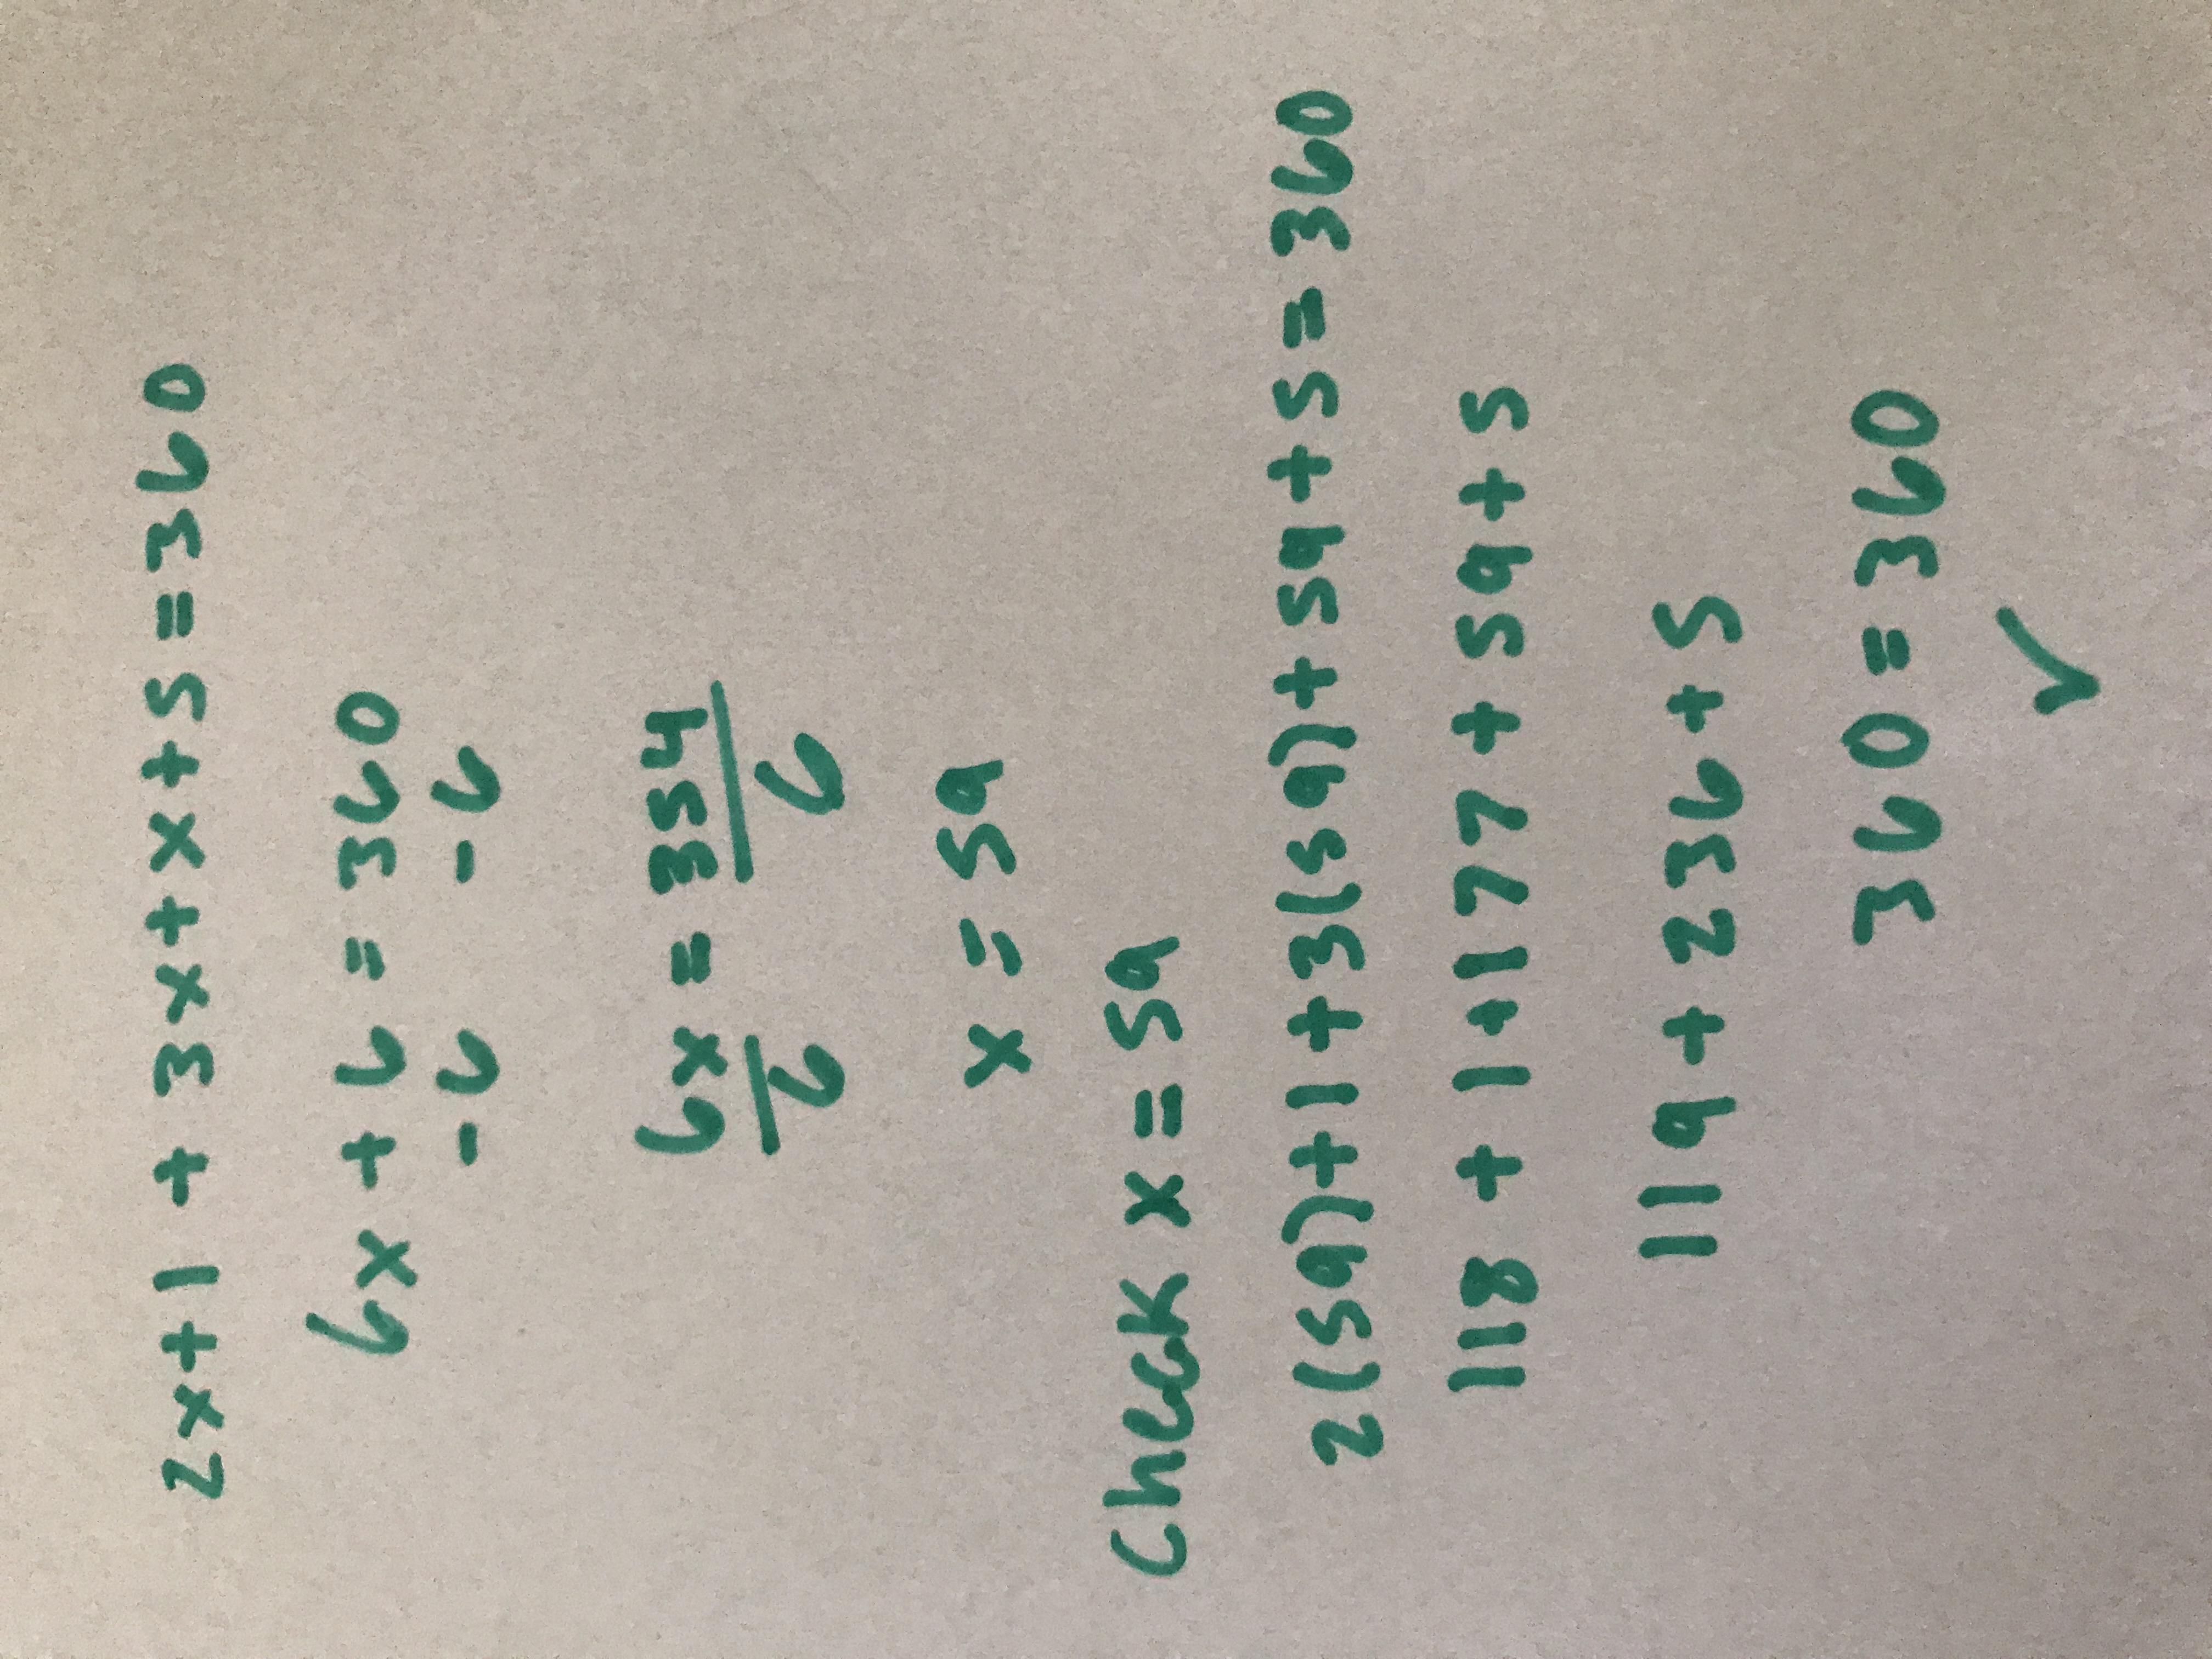 2x+1 + 3x+x+5=360
6x + 6 = 360
- 6 - 6
6x = 354
6 6
x = 59
Check x = 59
2(59)+1+3(59)+59+5=360
118 + 1+177+59+5
119+236+5
360=360
✓